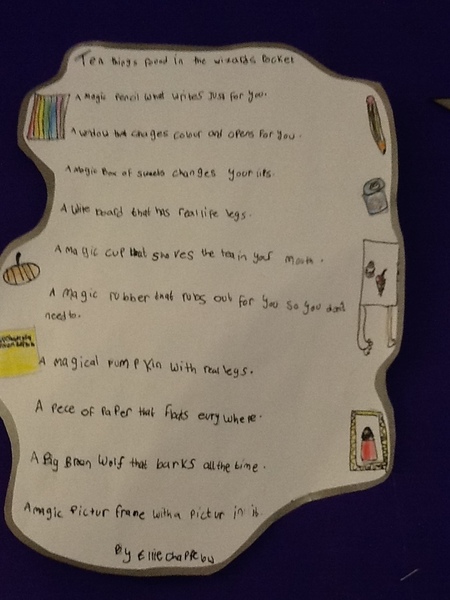 Ten things found in the wizards Pocket
A Magic Pencil what writes Just for you.
A window that changes colour and opens for you.
A Magic Box of sweets changes your lips.
A wite board that has real life legs.
A Magic cup that shoves the tea in your mouth.
A magic rubber that rubs out for you so you don't
need to.
A magical PumPkin with real legs.
A Pece of PaPer that floats eury where.
A Big Brown Wolf that barks all the time.
A magic Pictur frame with a Pictur in it.
By Ellie